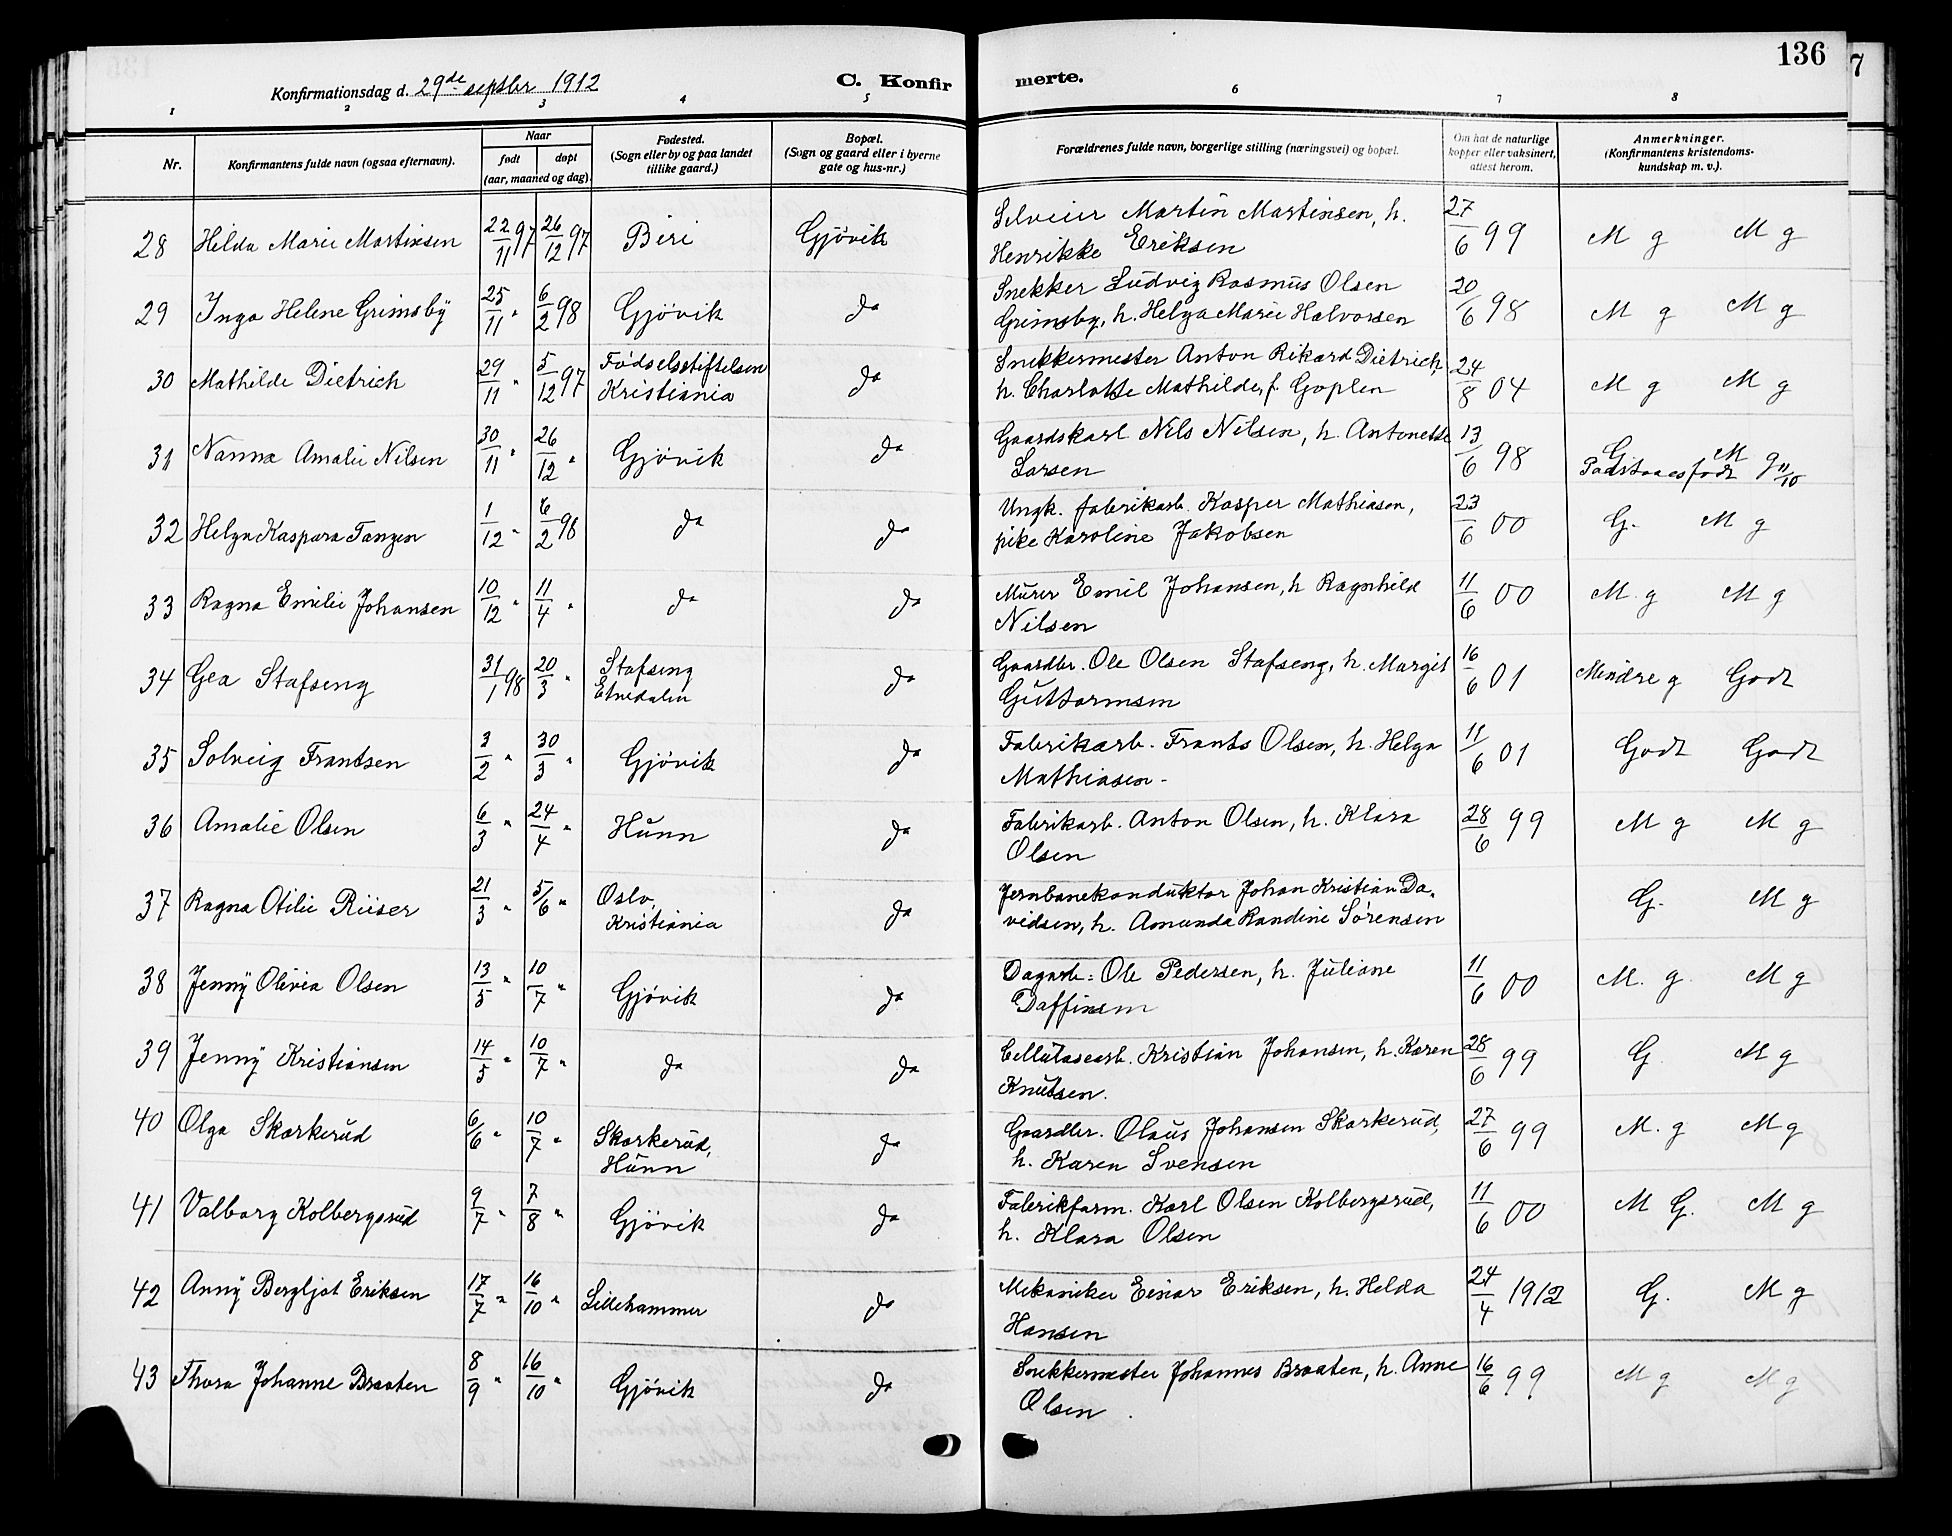 136
7
Konfirmationsdag d. 29de septbr 1912
C. Konfirmerte.
1 2 3 4 5 6 7 8
Nr.
Konfirmantens fulde navn (ogsaa efternavn).
Naar
født
døpt
(aar, maaned og dag).
Fødested.
(Sogn eller by og paa landet
tillike gaard.)
Bopæl.
(Sogn og gaard eller i byerne
gate og hus-nr.)
Forældrenes fulde navn, borgerlige stilling (næringsvei) og bopæl.
Om hat de naturlige
kopper eller vaksinert,
attest herom.
Anmerkninger.
(Konfirmantens kristendoms-
kundskap m. v.).
28 Hilda Marie Martinsen 22/11 97 26/12 97 Biri Gjövik Martin Martinsen, h. 27/6 99 M g M g
Henrikke Eriksen
29 Inga Helene Grimsby 25/11 " 6/2 98 Gjövik do Snekker Ludvig Rasmus Olsen 20/6 98 M g M g
Grimsby, h. Helga Marie Halvorsen
30 Mathilde Dietrich 29/11 " 5/12 97 Födselsstiftelsen do Snekkermester Anton Rikard Dietrich, 24/8 04 M g M g
Kristiania h. Charlotte Mathilde, f. Goplen
31 Nanna Amalie Nilsen 30/11 " 26/12 " Gjövik do Gaardskarl Nils Nilsen, h. Antonette 13/6 98 G M g
Larsen 11/10
32 Helga Kaspara Tangen 1/12 " 6/2 98 do do Ungk. fabrikarb. Kasper Mathiasen, 23/6 00 G. M g
pike Karoline Jakobsen
33 Ragna Emilie Johansen 10/12 " 11/4 " do do Murer Emil Johansen, h Ragnhild 11/6 00 M. g M g
Nilsen
34 Gea Stafseng 31/1 98 20/3 " Stafseng do Gaardbr. Ole Olsen Stafseng, h. Margit 16/6 01 Mindre g Godt
Etnedalen Guttormsen
35 Solveig Frantsen 3/2 " 30/3 " Gjövik do Fabrikarb. Frants Olsen, h. Helga 11/6 01 Godt Godt
Mathiasen -
36 Amalie Olsen 6/3 " 24/4 " Hunn do Fabrikarb. Anton Olsen, h. Klara 28/6 99 M g M g
Olsen
37 Ragna Otilie Riiser 21/3 " 5/6 " Oslo, do Jernbanekonduktør Johan Kristian Da- G. M g
Kristiania vidsen, h. Amunda Randine Sörensen
38 Jenny Olivia Olsen 13/5 " 10/7 " Gjövik do Dagarb. Ole Pedersen, h. Juliane 11/6 00 M. g. M g
Daffinsen
39 Jenny Kristiansen 14/5 " 10/7 " do do Cellulosearb. Kristian Johansen, h. Karen 28/6 99 G. M g
Knutsen.
40 Olga Skarkerud 6/6 " 10/7 " Skarkerud, do Gaardbr. Olaus Johansen Skarkerud, 27/6 99 M. g M g
Hunn h. Karen Svensen
41 Valborg Kolbergsrud 9/7 " 7/8 " Gjövik do Fabrikform. Karl Olsen Kolbergsrud, 11/6 00 M G. M g
h. Klara Olsen
42 Anny Bergljot Eriksen 17/7 " 16/10 " Lillehammer do Mekaniker Einar Eriksen, h. Helda 24/4 1912 G. M g
Hansen
43 Thora Johanne Braaten 8/9 " 16/10 " Gjövik do Snekkermester Johannes Braaten, h. Anne 16/6 99 M g M g
Olsen.